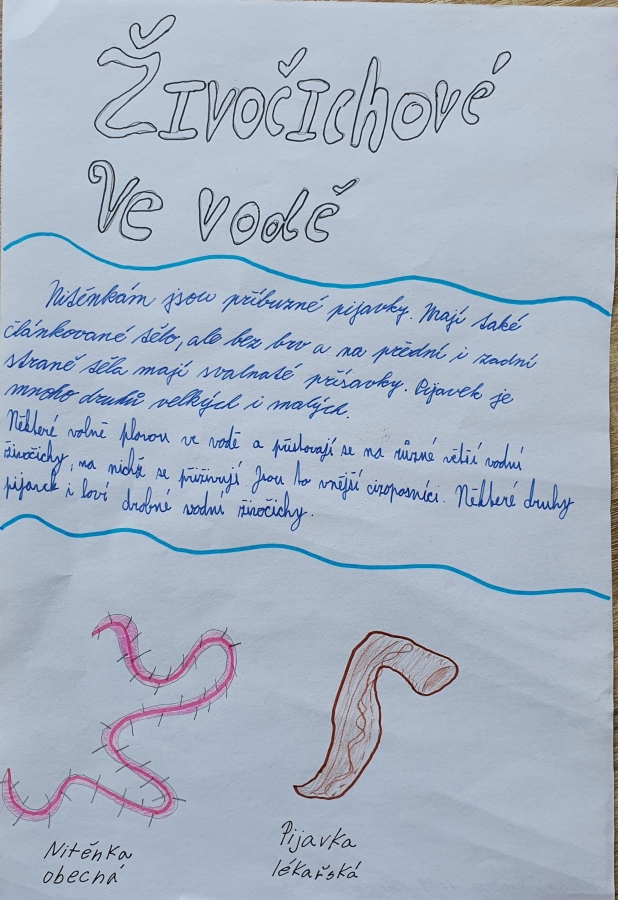 Živočichové
Ve vodě
Nitěnkám jsou příbuzné pijavky. Mají také
článkované tělo, ale bez brv a na přední i zadní
straně těla mají svalnaté přísavky. Pijavek je
mnoho druhů velkých i malých.
Některé volně plavou ve vodě a přichytávají se na různé větší vodní
živočichy, na nichž se přiživují Jsou to vnější cizopasníci. Některé druhy
pijavek i loví drobné vodní živočichy.
Nitěnka
obecná
Pijavka
lékařská